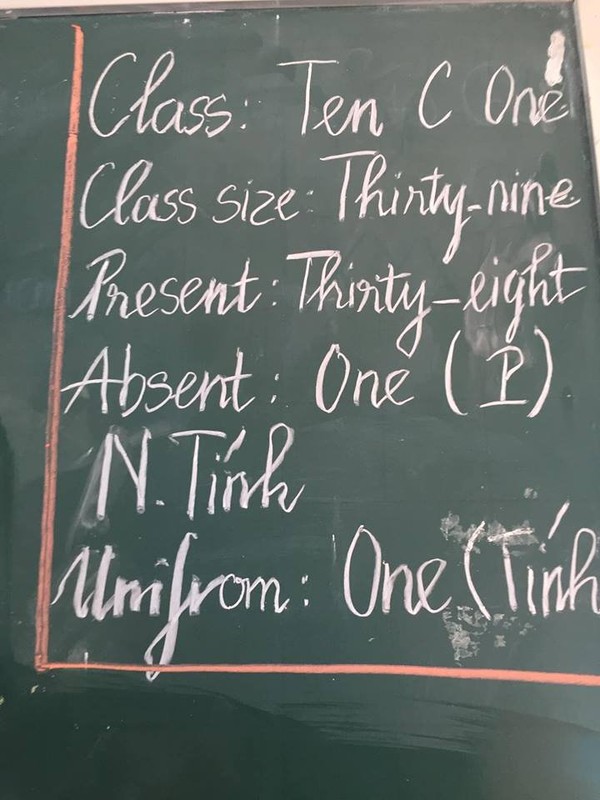 Class: Ten C One
Class size: Thirty-nine
Present: Thirty-eight
Absent: One (P)
N. Tính
Unifrom: One (Tính